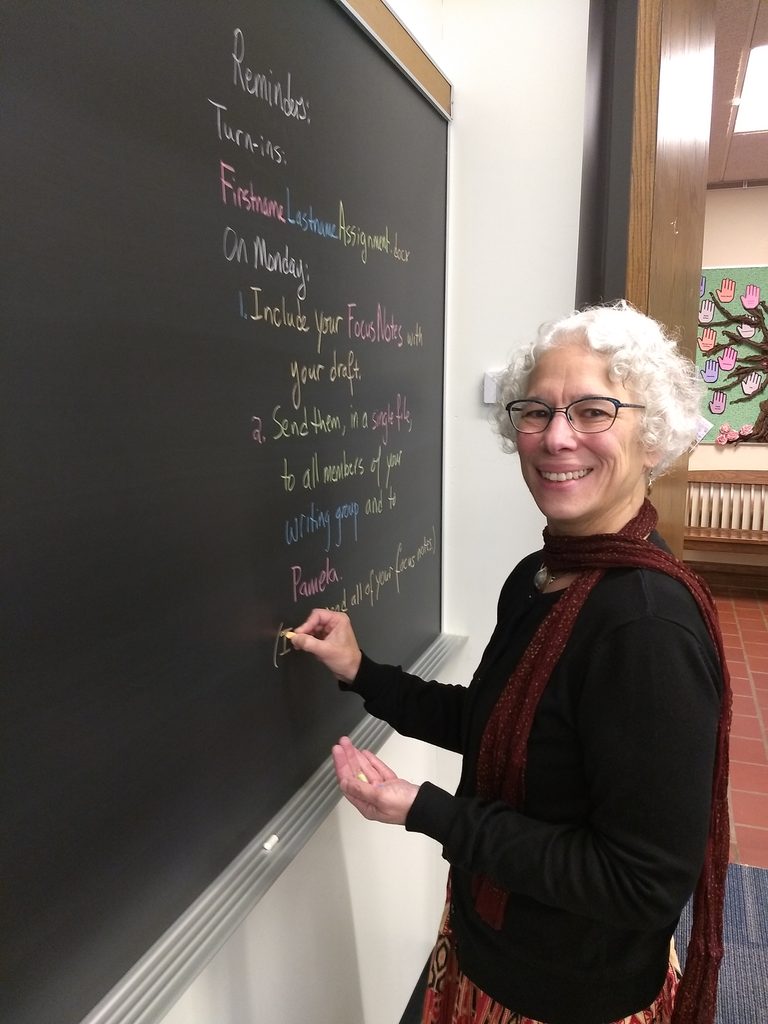 Reminders:
Turn-ins:
FirstnameLastnameAssignment.docx
On Monday:
1. Include your Focus Notes with
your draft.
2. Send them, in a single file,
to all members of your
writing group and to
Pamela.
(I read all of your focus notes!)